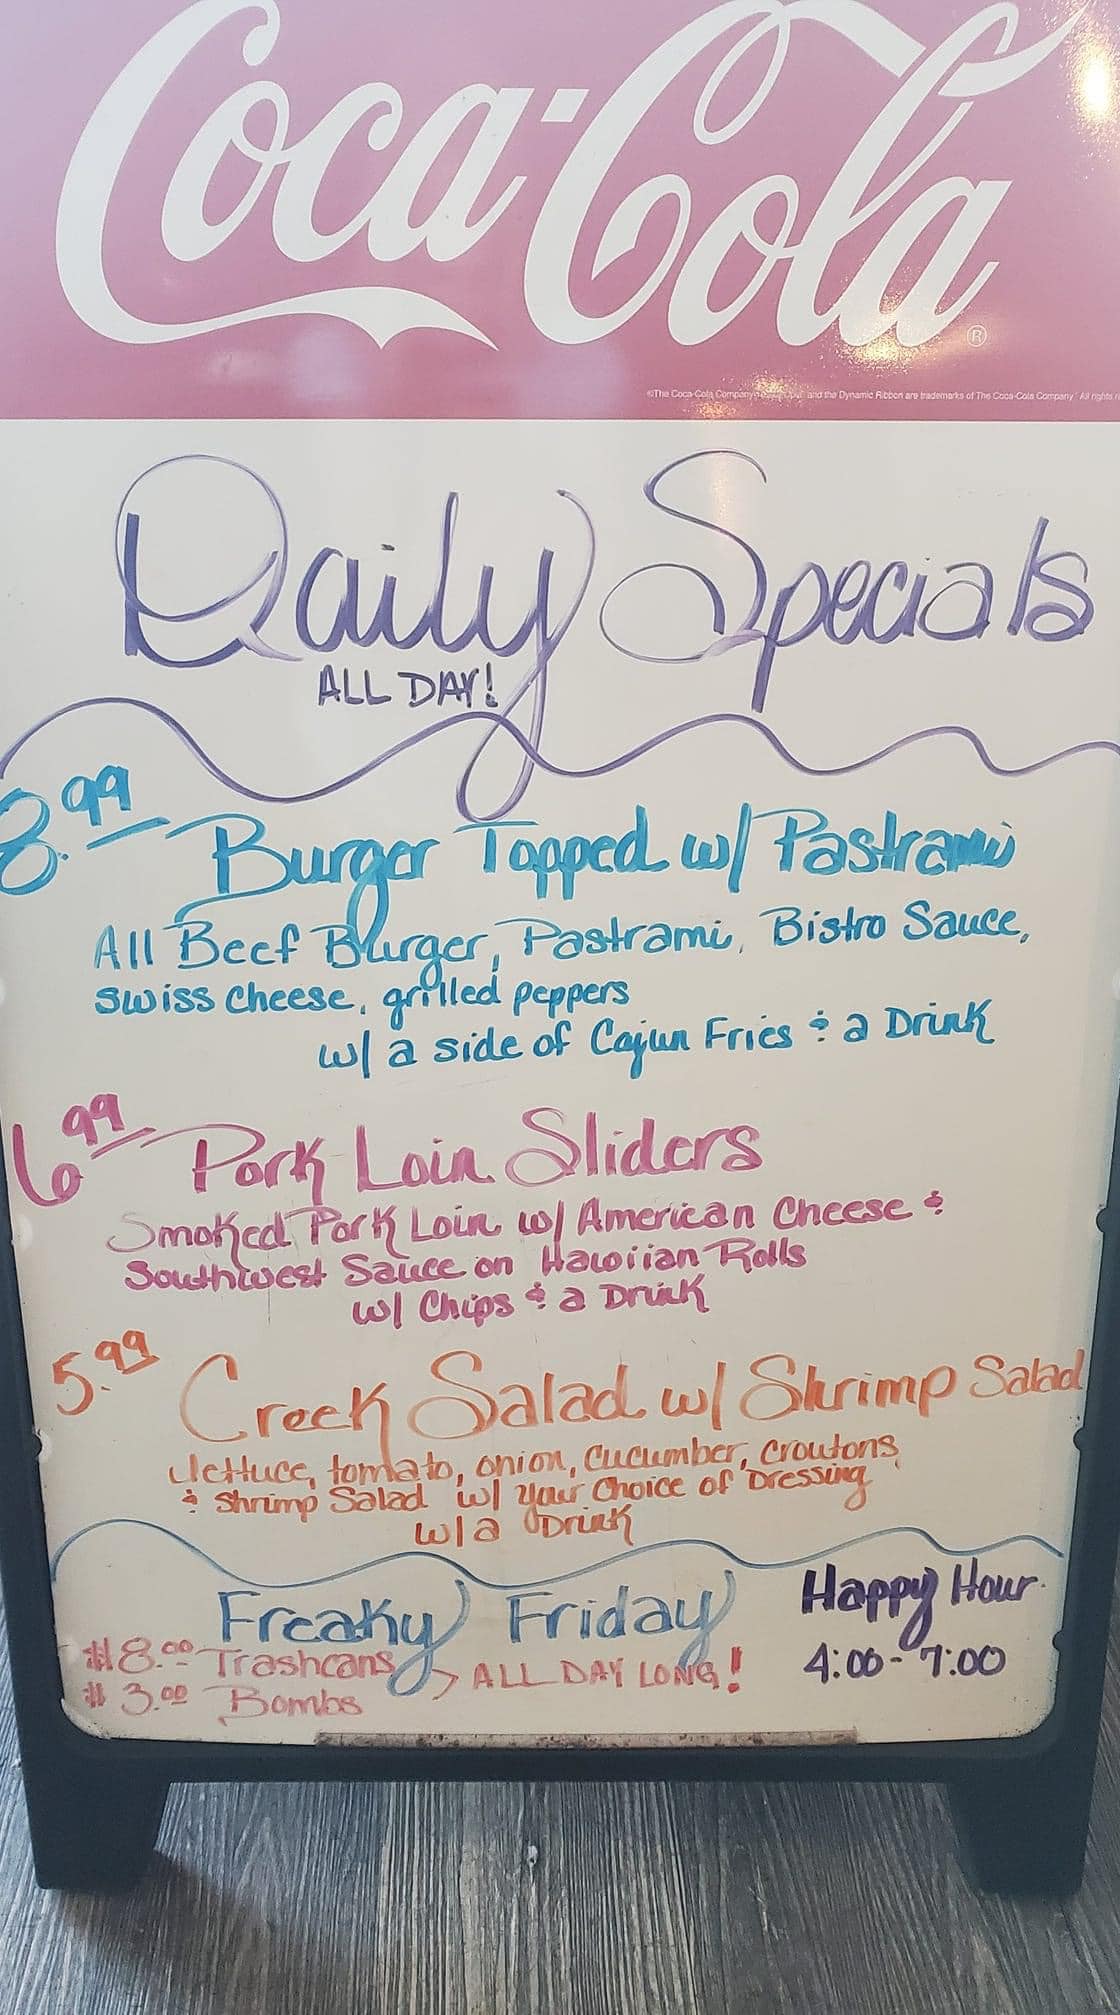 Coca-Cola
®
©The Coca-Cola Company. and the Dynamic Ribbon are trademarks of The Coca-Cola Company. All rights
Daily Specials
ALL DAY!
8.99 Burger Topped w/ Pastrami
All Beef Burger, Pastrami, Bistro Sauce,
swiss cheese, grilled peppers
w/ a side of Cajun Fries & a Drink
6.99 Pork Loin Sliders
Smoked Pork Loin w/ American Cheese &
Southwest Sauce on Hawiian Rolls
w/ Chips & a Drink
5.99 Creek Salad w/ Shrimp Salad
Lettuce, tomato, onion, cucumber, croutons,
& Shrimp Salad w/ your Choice of Dressing
w/ a Drink
Freaky Friday
$8.00 Trashcans
$3.00 Bombs
> ALL DAY LONG!
Happy Hour
4:00-7:00